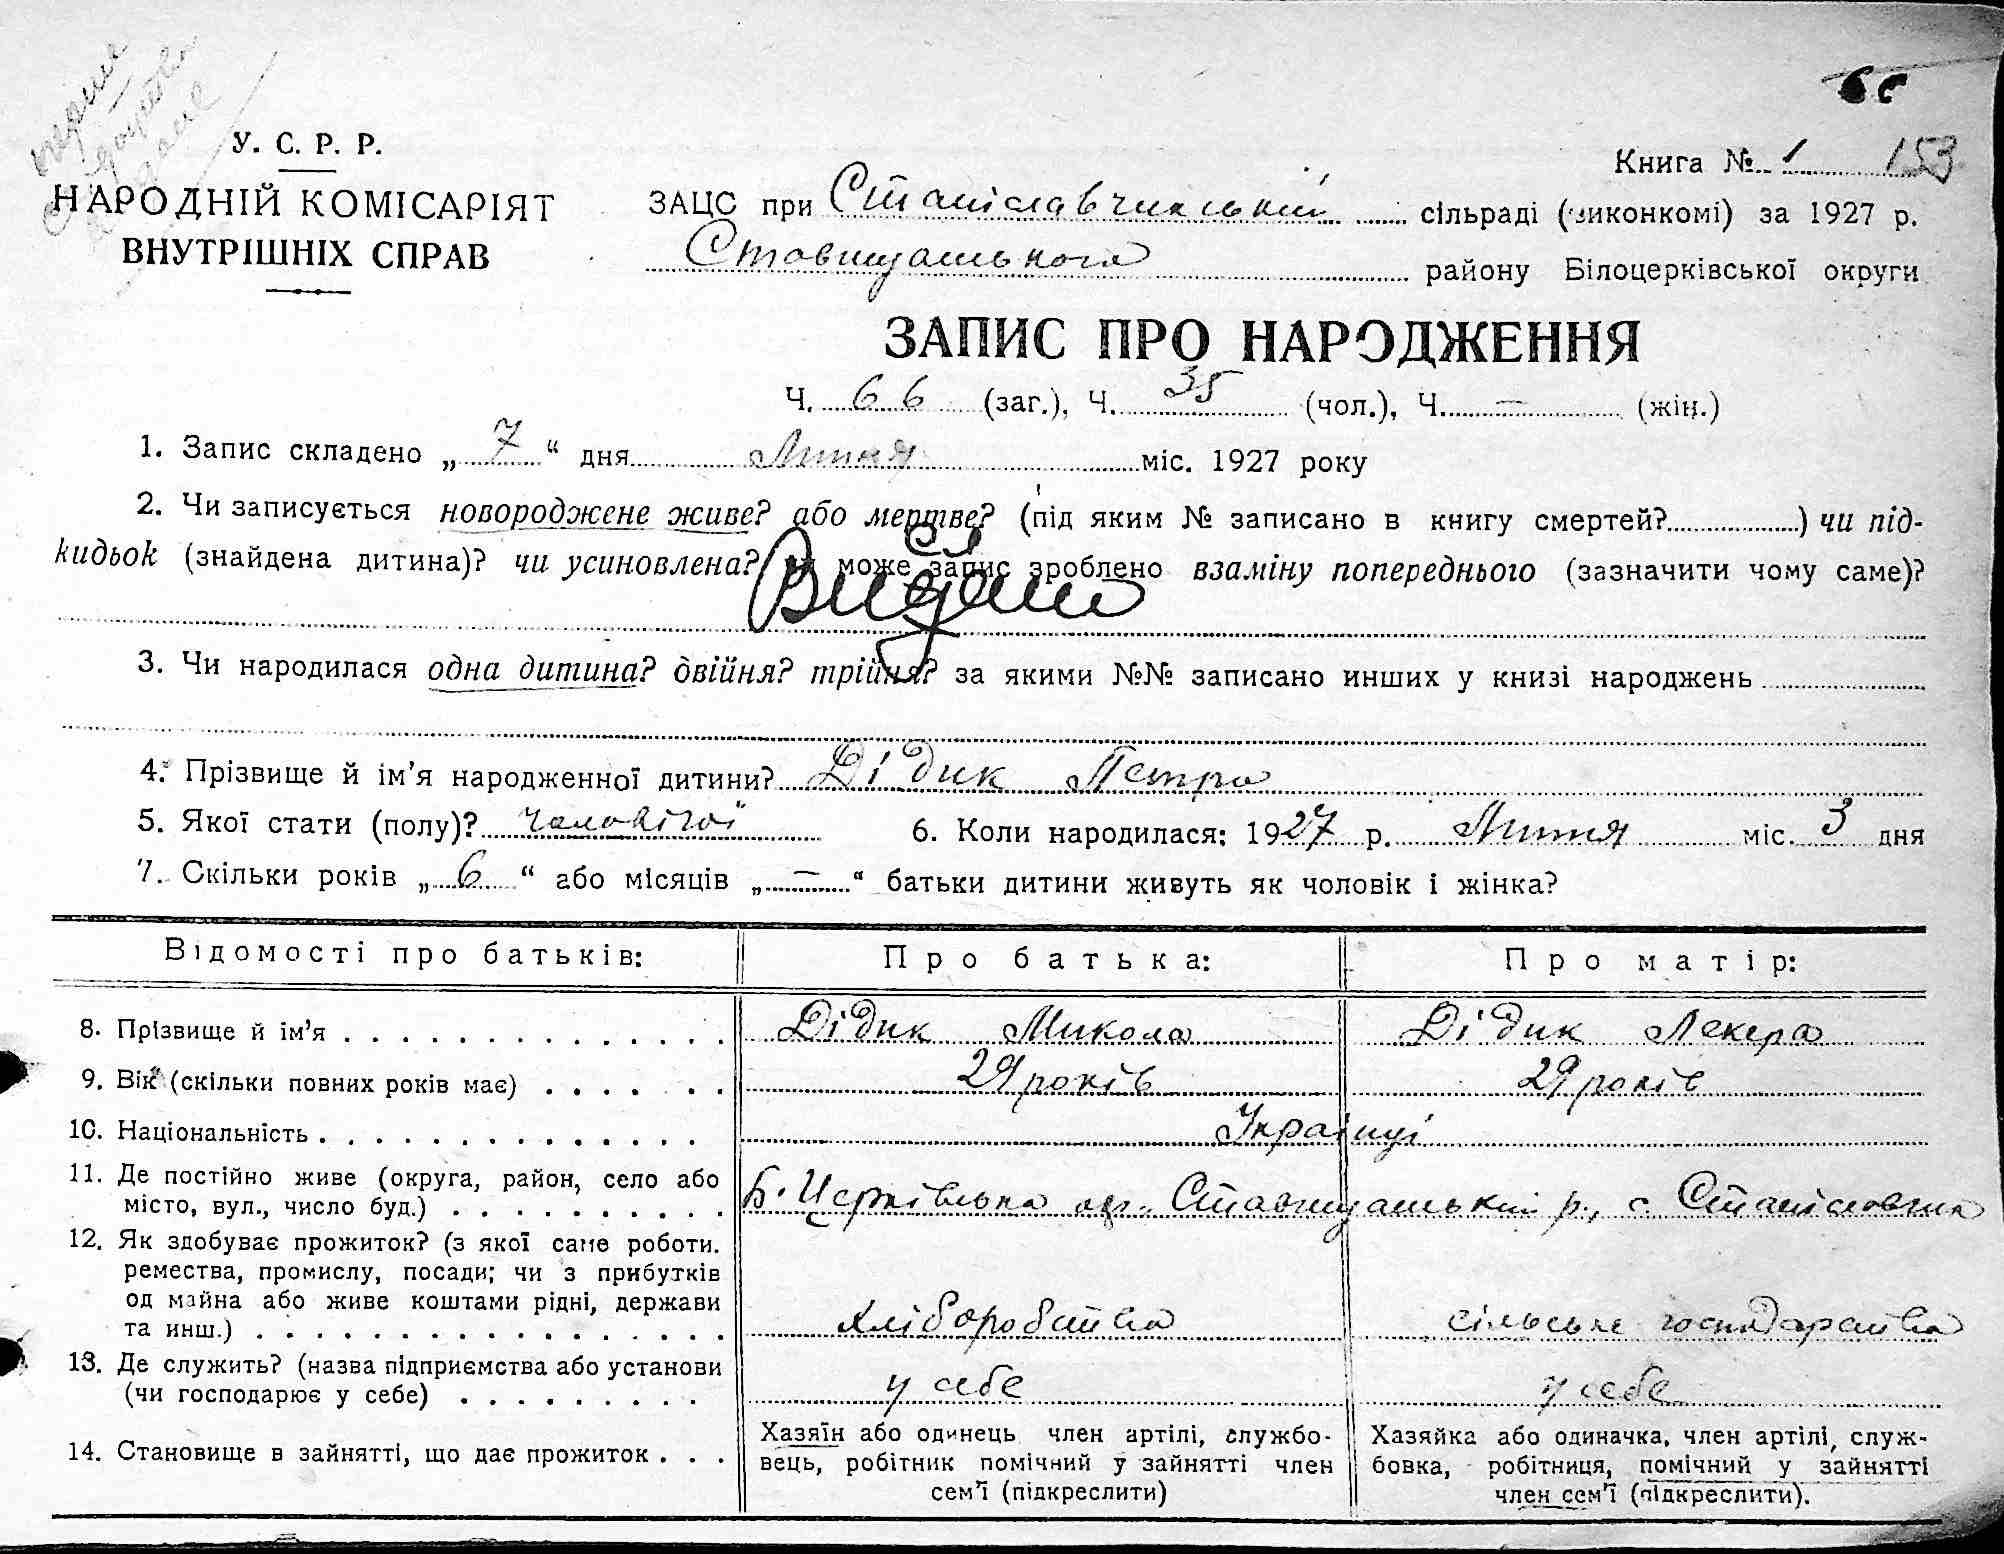 У. С. Р. Р.
НАРОДНІЙ КОМІСАРІЯТ
ВНУТРІШНІХ СПРАВ
Книга № 1 153
ЗАЦС при Станіславчикській сільраді (виконкомі) за 1927 р.
Ставищанського району Білоцерківської округи
ЗАПИС ПРО НАРОДЖЕННЯ
Ч. 66 (заг.), Ч. 35 (чол.), Ч. — (жін.)
1. Запис складено „ 7 “ дня Липня міс. 1927 року
2. Чи записується новороджене живе? або мертве? (під яким № записано в книгу смертей? ) чи під-
кидьок (знайдена дитина)? чи усиновлена? може запис зроблено взаміну попереднього (зазначити чому саме)?
3. Чи народилася одна дитина? двійня? трійня? за якими №№ записано инших у книзі народжень
4. Прізвище й ім’я народженної дитини? Дідик Петро
5. Якої стати (полу)? чоловічої 6. Коли народилася: 1927 р. Липня міс. 3 дня
7. Скільки років „ 6 “ або місяців „ — “ батьки дитини живуть як чоловік і жінка?
Відомості про батьків: Про батька: Про матір:
8. Прізвище й ім’я Дідик Микола Дідик Лекера
9. Вік (скільки повних років має) 29 років 29 років
10. Національність Українці
11. Де постійно живе (округа, район, село або
місто, вул., число буд.) Б. Церківська окр., Ставищанський р., с. Станіславчик
12. Як здобуває прожиток? (з якої саме роботи.
ремества, промислу, посади; чи з прибутків
од майна або живе коштами рідні, держави
та инш.) хліборобства сільське господарства
13. Де служить? (назва підприємства або установи
(чи господарює у себе) у себе у себе
14. Становище в зайнятті, що дає прожиток
Хазяїн або одинець член артілі, службо-
вець, робітник помічний у зайнятті член
сем’ї (підкреслити)
Хазяйка або одиначка, член артілі, служ-
бовка, робітниця, помічний у зайнятті
член сем’ї (підкреслити).